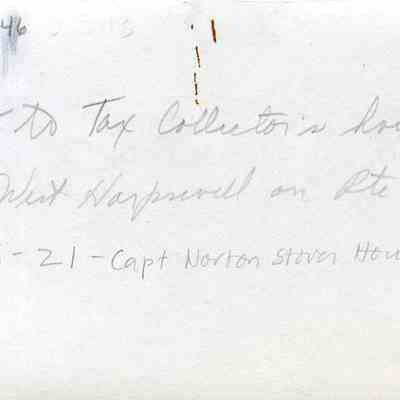 46
to Tax Collector's
West Harpswell on Rte
- 21 - Capt Norton Stover Hou